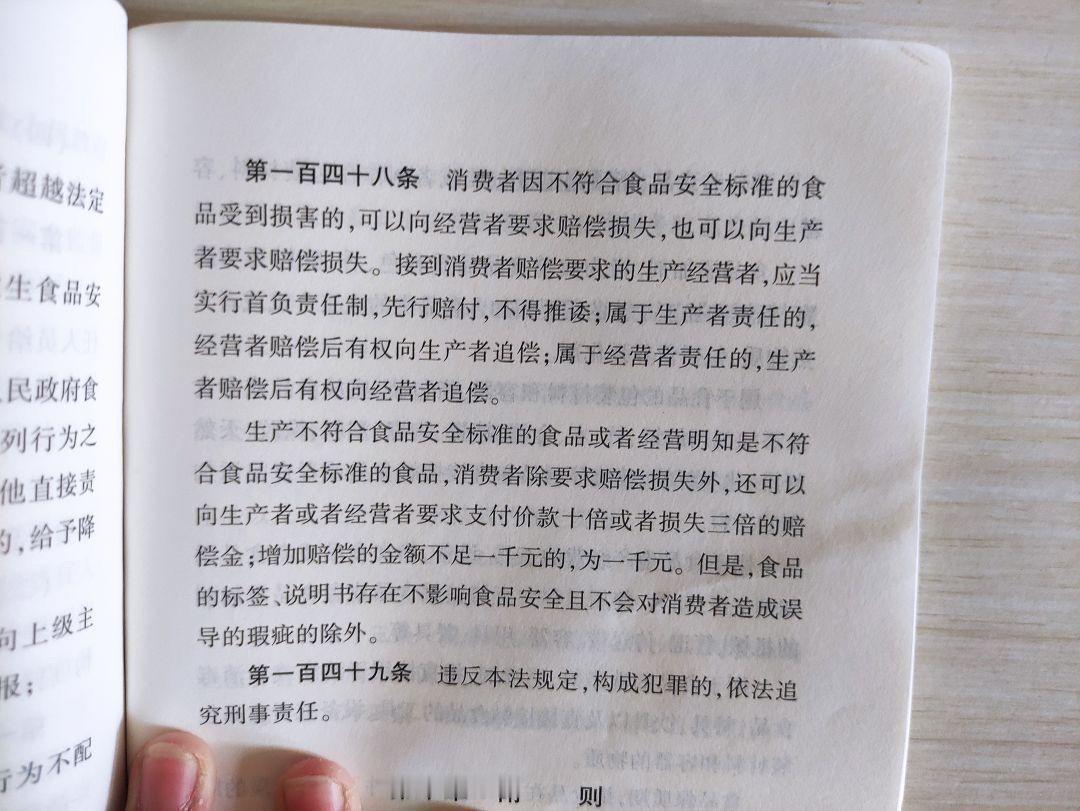 超越法定
生食品安
民政府食
列行为之
他直接责
的,给予降
向上级主
报;
行为不配
第一百四十八条 消费者因不符合食品安全标准的食
品受到损害的,可以向经营者要求赔偿损失,也可以向生产
者要求赔偿损失。接到消费者赔偿要求的生产经营者,应当
实行首负责任制,先行赔付,不得推诿;属于生产者责任的,
经营者赔偿后有权向生产者追偿;属于经营者责任的,生产
者赔偿后有权向经营者追偿。
生产不符合食品安全标准的食品或者经营明知是不符
合食品安全标准的食品,消费者除要求赔偿损失外,还可以
向生产者或者经营者要求支付价款十倍或者损失三倍的赔
偿金;增加赔偿的金额不足一千元的,为一千元。但是,食品
的标签、说明书存在不影响食品安全且不会对消费者造成误
导的瑕疵的除外。
第一百四十九条 违反本法规定,构成犯罪的,依法追
究刑事责任。
则